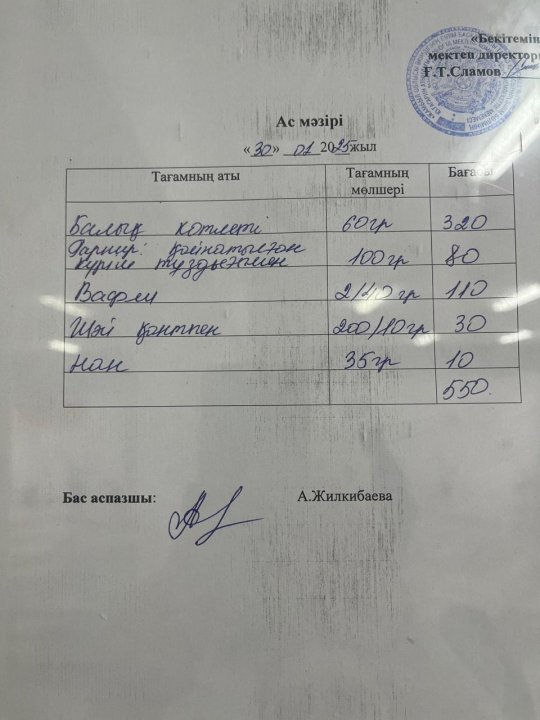 «Бекітемін
мектеп директоры
Ғ.Т.Сламов
Ас мәзірі
« 30 » 01 2025жыл
Тағамның аты Тағамның мөлшері Бағасы
Балық котлеті 60гр 320
Гарнир: қайнатылған
күріш тұздықпен 100гр 80
Вафли 2/40гр 110
Шәй қантпен 200/10гр 30
Нан 35гр 10
550.
Бас аспазшы: А.Жилкибаева